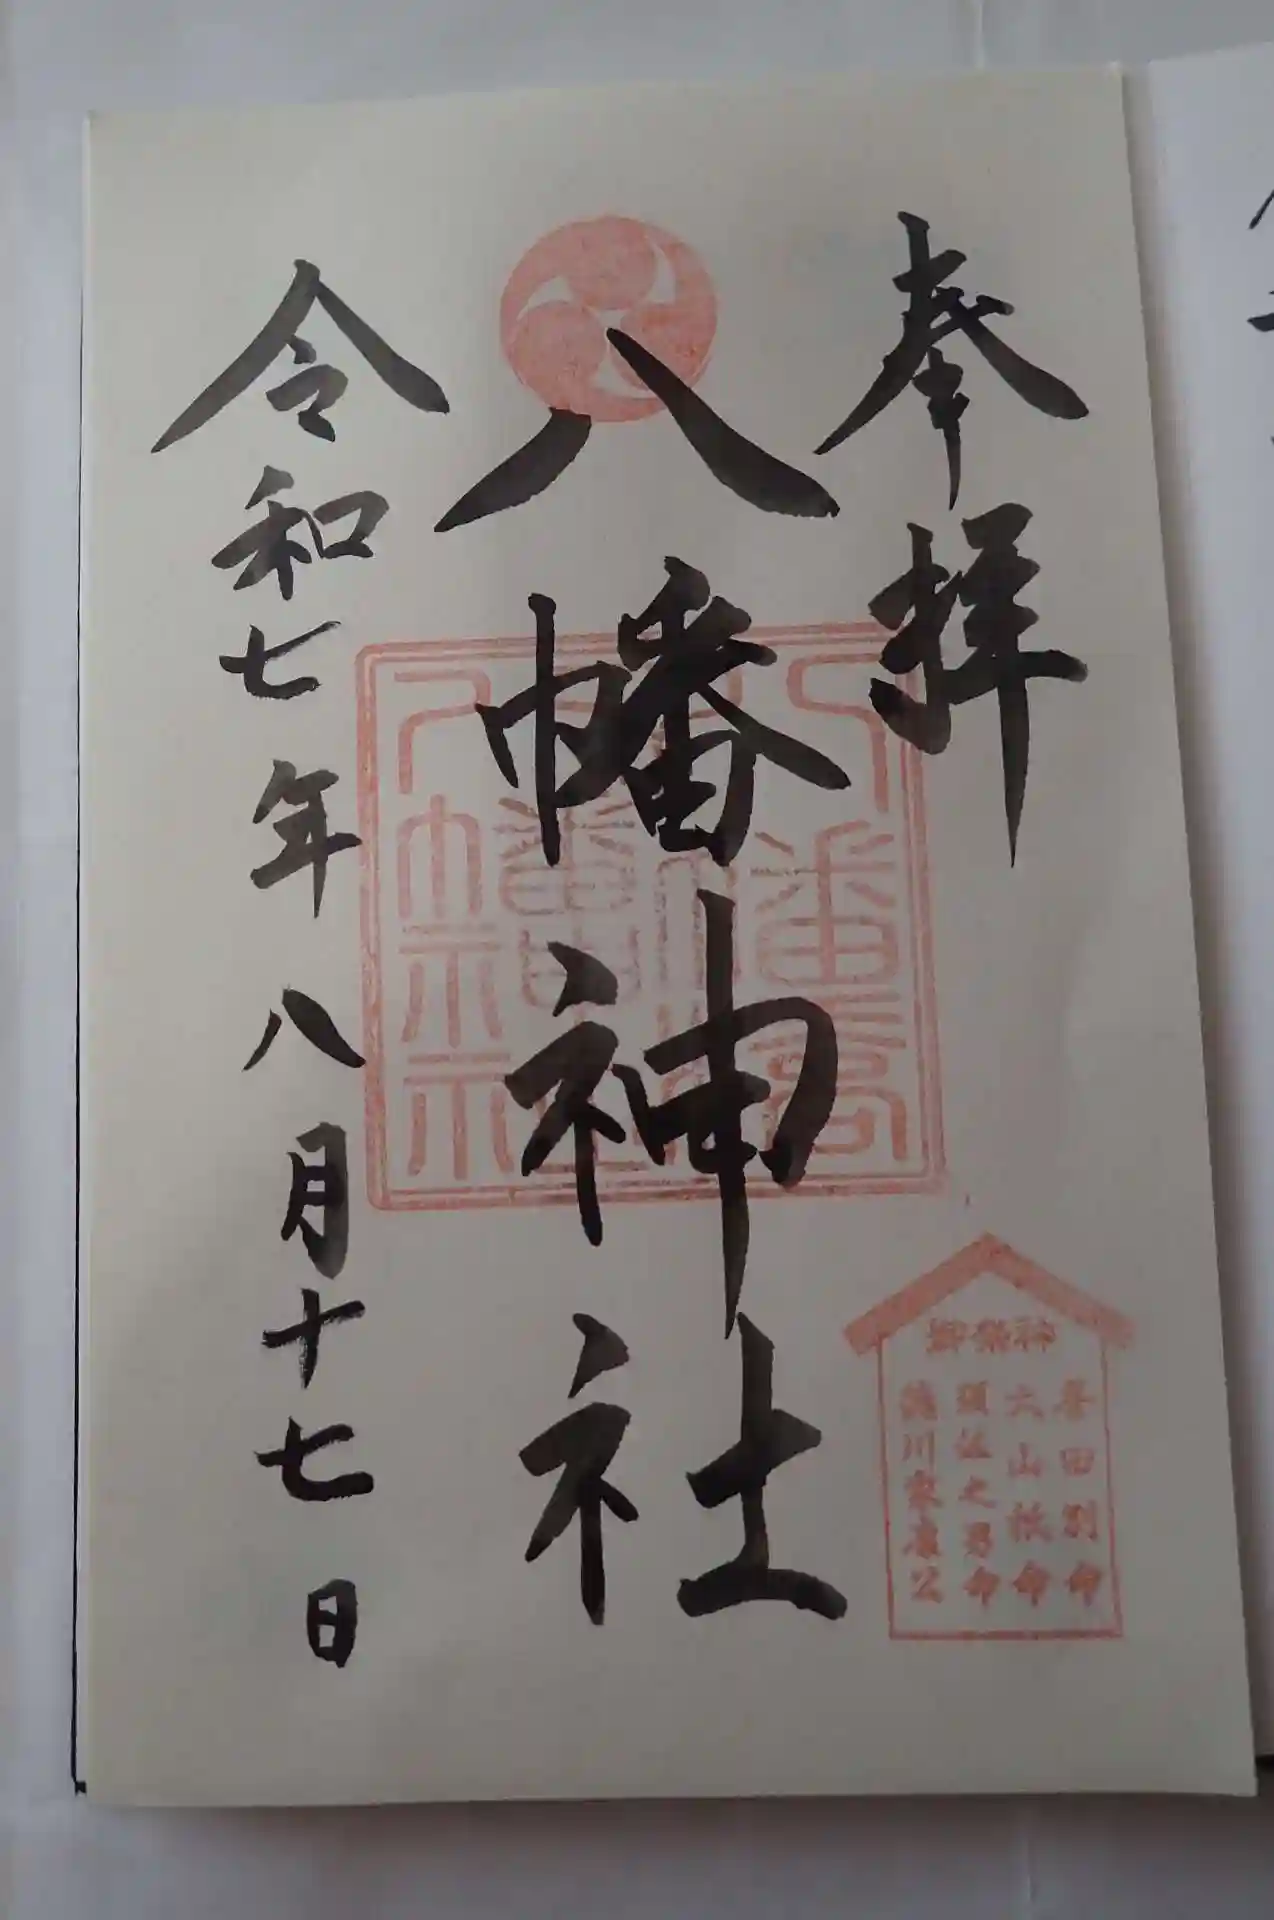 奉拝
八幡神社
令和七年八月十七日
御祭神
誉田別命
大山祇命
須佐之男命
徳川家康公